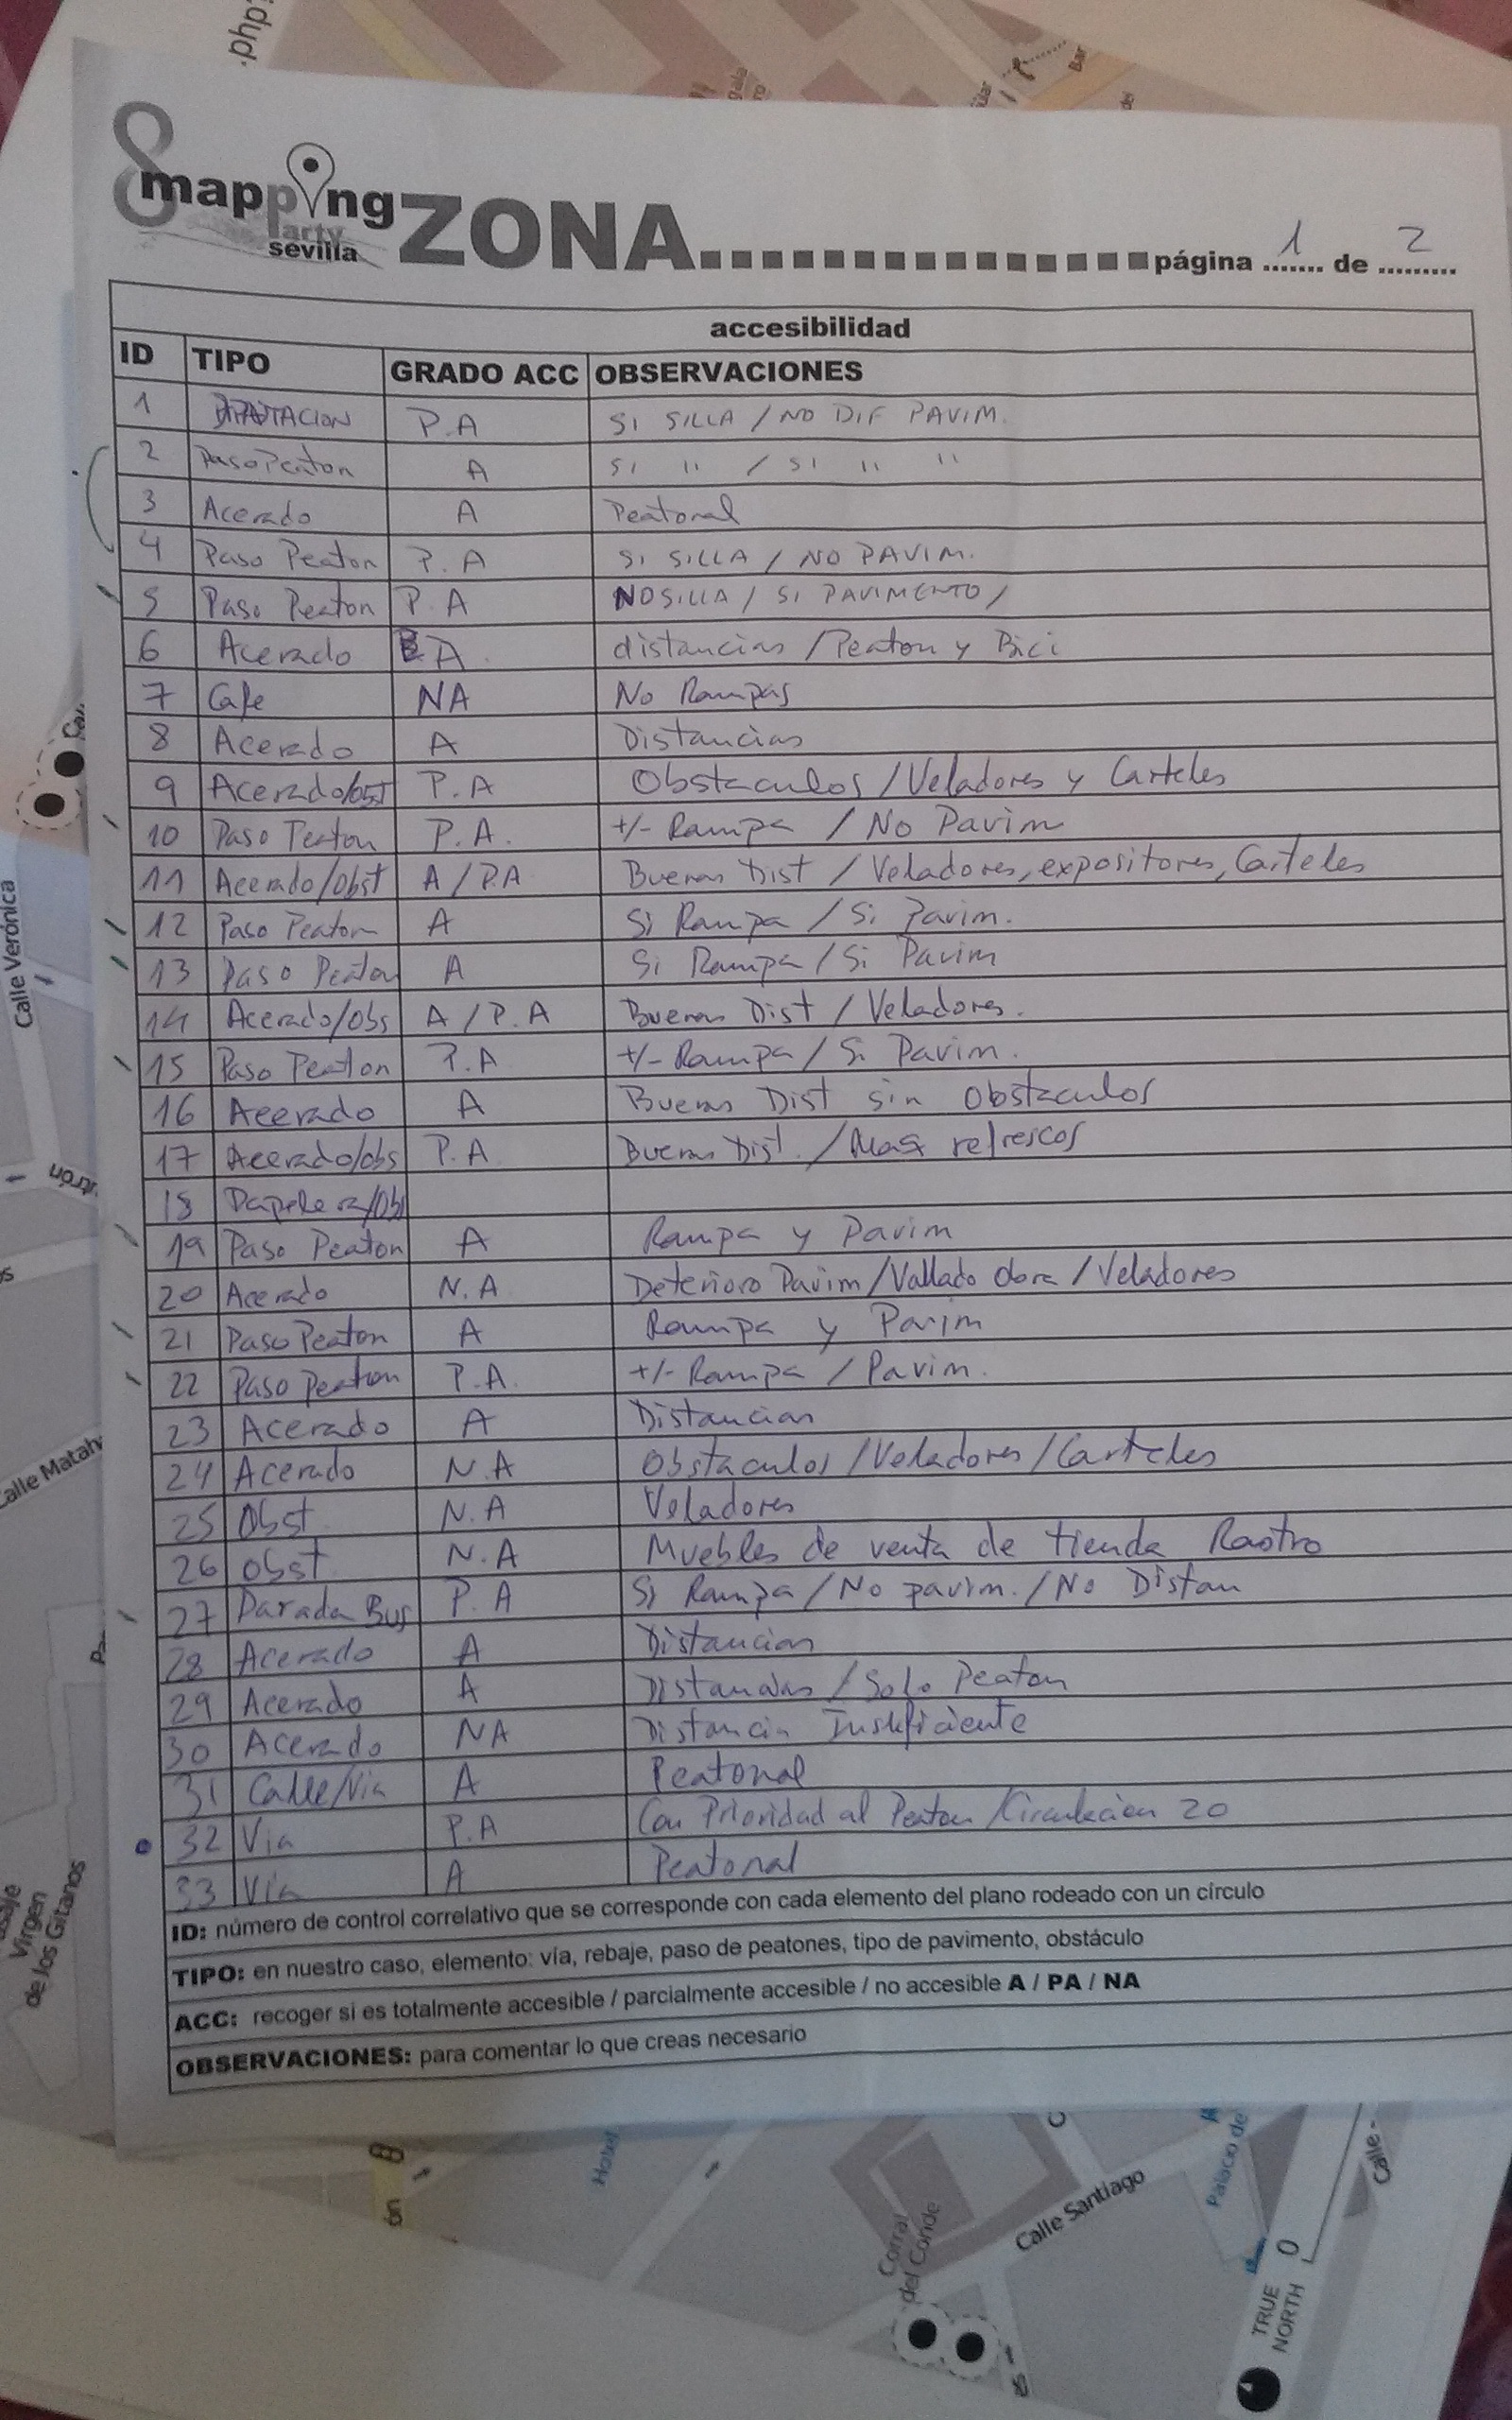 .php
8 mapping
party
sevilla
ZONA
página 1 de 2
accesibilidad
ID TIPO GRADO ACC OBSERVACIONES
1 P.A SI SILLA / NO DIF PAVIM.
2 Paso Peaton A SI " / SI " "
3 Acerado A Peatonal
4 Paso Peaton P.A SI SILLA / NO PAVIM.
5 Paso Peaton P.A NO SILLA / SI PAVIMENTO /
6 Acerado A. distancias / Peaton y Bici
7 Cafe NA No Rampas
8 Acerado A Distancias
9 Acerado/obst P.A Obstaculos / Veladores y Carteles
10 Paso Peaton P.A. +/- Rampa / No Pavim
11 Acerado/Obst A / P.A Buenas Dist / Veladores, expositores, Carteles
12 Paso Peaton A Si Rampa / Si Pavim.
13 Paso Peaton A Si Rampa / Si Pavim
14 Acerado/Obs A / P.A Buenas Dist / Veladores.
15 Paso Peaton P.A +/- Rampa / Si Pavim.
16 Acerado A Buenas Dist sin Obstaculos
17 Acerado/obs P.A Buenas Dist. / refrescos
18 Papelera/Obs
19 Paso Peaton A Rampa y Pavim
20 Acerado N.A Deterioro Pavim / Vallado obra / Veladores
21 Paso Peaton A Rampa y Pavim
22 Paso Peaton P.A. +/- Rampa / Pavim.
23 Acerado A Distancias
24 Acerado N.A Obstaculos / Veladores / Carteles
25 Obst. N.A Veladores
26 obst. N.A Muebles de venta de tienda Rastro
27 Parada Bus P.A Si Rampa / No pavim. / No Distan
28 Acerado A Distancias
29 Acerado A Distancias / Solo Peaton
30 Acerado NA Distancia Insuficiente
31 Calle/Via A Peatonal
32 Via P.A Con Prioridad al Peaton / Circulacion 20
33 Via A Peatonal
ID: número de control correlativo que se corresponde con cada elemento del plano rodeado con un círculo
TIPO: en nuestro caso, elemento: vía, rebaje, paso de peatones, tipo de pavimento, obstáculo
ACC: recoger si es totalmente accesible / parcialmente accesible / no accesible A / PA / NA
OBSERVACIONES: para comentar lo que creas necesario
Calle Verónica
Virgen
de los Gitanos
Hotel
Corral
del Conde
Calle Santiago
Palacio de
Calle
TRUE
NORTH
0